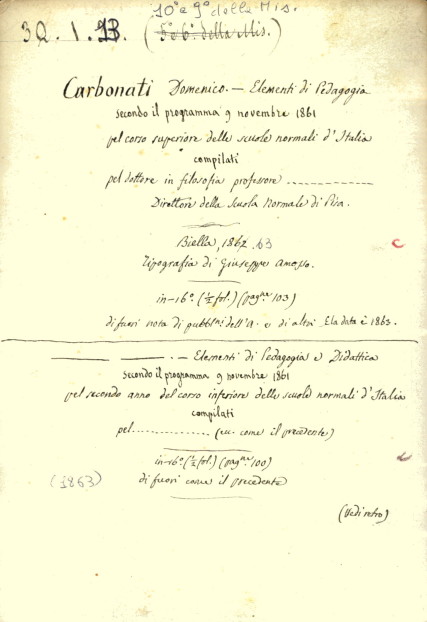 10° e 9° della Mis.
3Q. 1. 13. (5° e 6° della Mis.)
Carbonati Domenico. — Elementi di Pedagogia
secondo il programma 9 novembre 1861
pel corso superiore delle scuole normali d'Italia
compilati
pel dottore in filosofia professore ..............
Direttore della Scuola Normale di Pisa.
Biella, 1862. 63
Tipografia di Giuseppe Amosso.
in-16°. (½ fol.) (pagne 103)
di fuori nota di pubblni. dell'A. e di altri. E la data è 1863.
C
——— ———. — Elementi di Pedagogia e Didattica
secondo il programma 9 novembre 1861
pel secondo anno del corso inferiore delle scuole normali d'Italia
compilati
pel............... (ecc. come il precedente)
in-16° (½ fol.) (pagne. 100)
C
(1863) di fuori come il precedente
(Vedi retro)